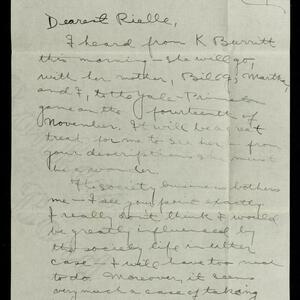 Dearest Rielle,
I heard from K Burritt
this morning – she will go,
with her mother, Bill G, Martha,
and I, to the Yale-Princeton
game on the fourteenth of
November. It will be a great
treat for me to see her – from
your descriptions she must
be a wonder.
The society business bothers
me – I see your point exactly
I really don't think I would
be greatly influenced by
the society life in either
case – I will have too much
to do. Moreover, it seems
very much a case of taking